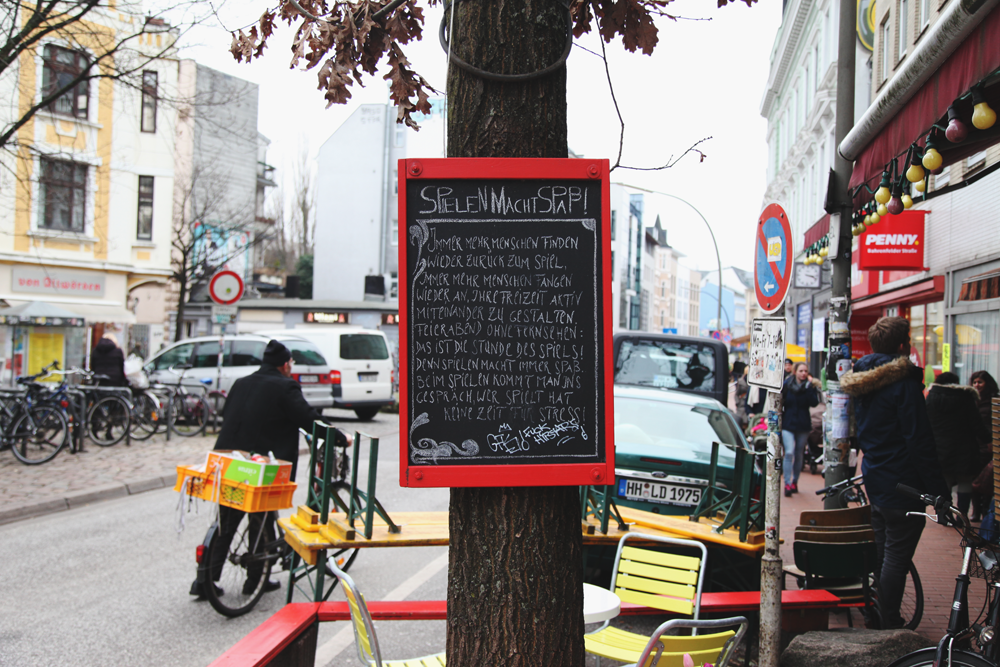 SPIELEN MACHT SPAß!
IMMER MEHR MENSCHEN FINDEN
WIEDER ZURÜCK ZUM SPIEL,
IMMER MEHR MENSCHEN FANGEN
WIEDER AN, IHRE FREIZEIT AKTIV
MITEINANDER ZU GESTALTEN.
FEIERABEND OHNE FERNSEHEN:
DAS IST DIE STUNDE DES SPIELS!
DENN SPIELEN MACHT IMMER SPAß.
BEIM SPIELEN KOMMT MAN INS
GESPRÄCH, WER SPIELT HAT
KEINE ZEIT FÜR STRESS!
PENNY.
HH LD 1975